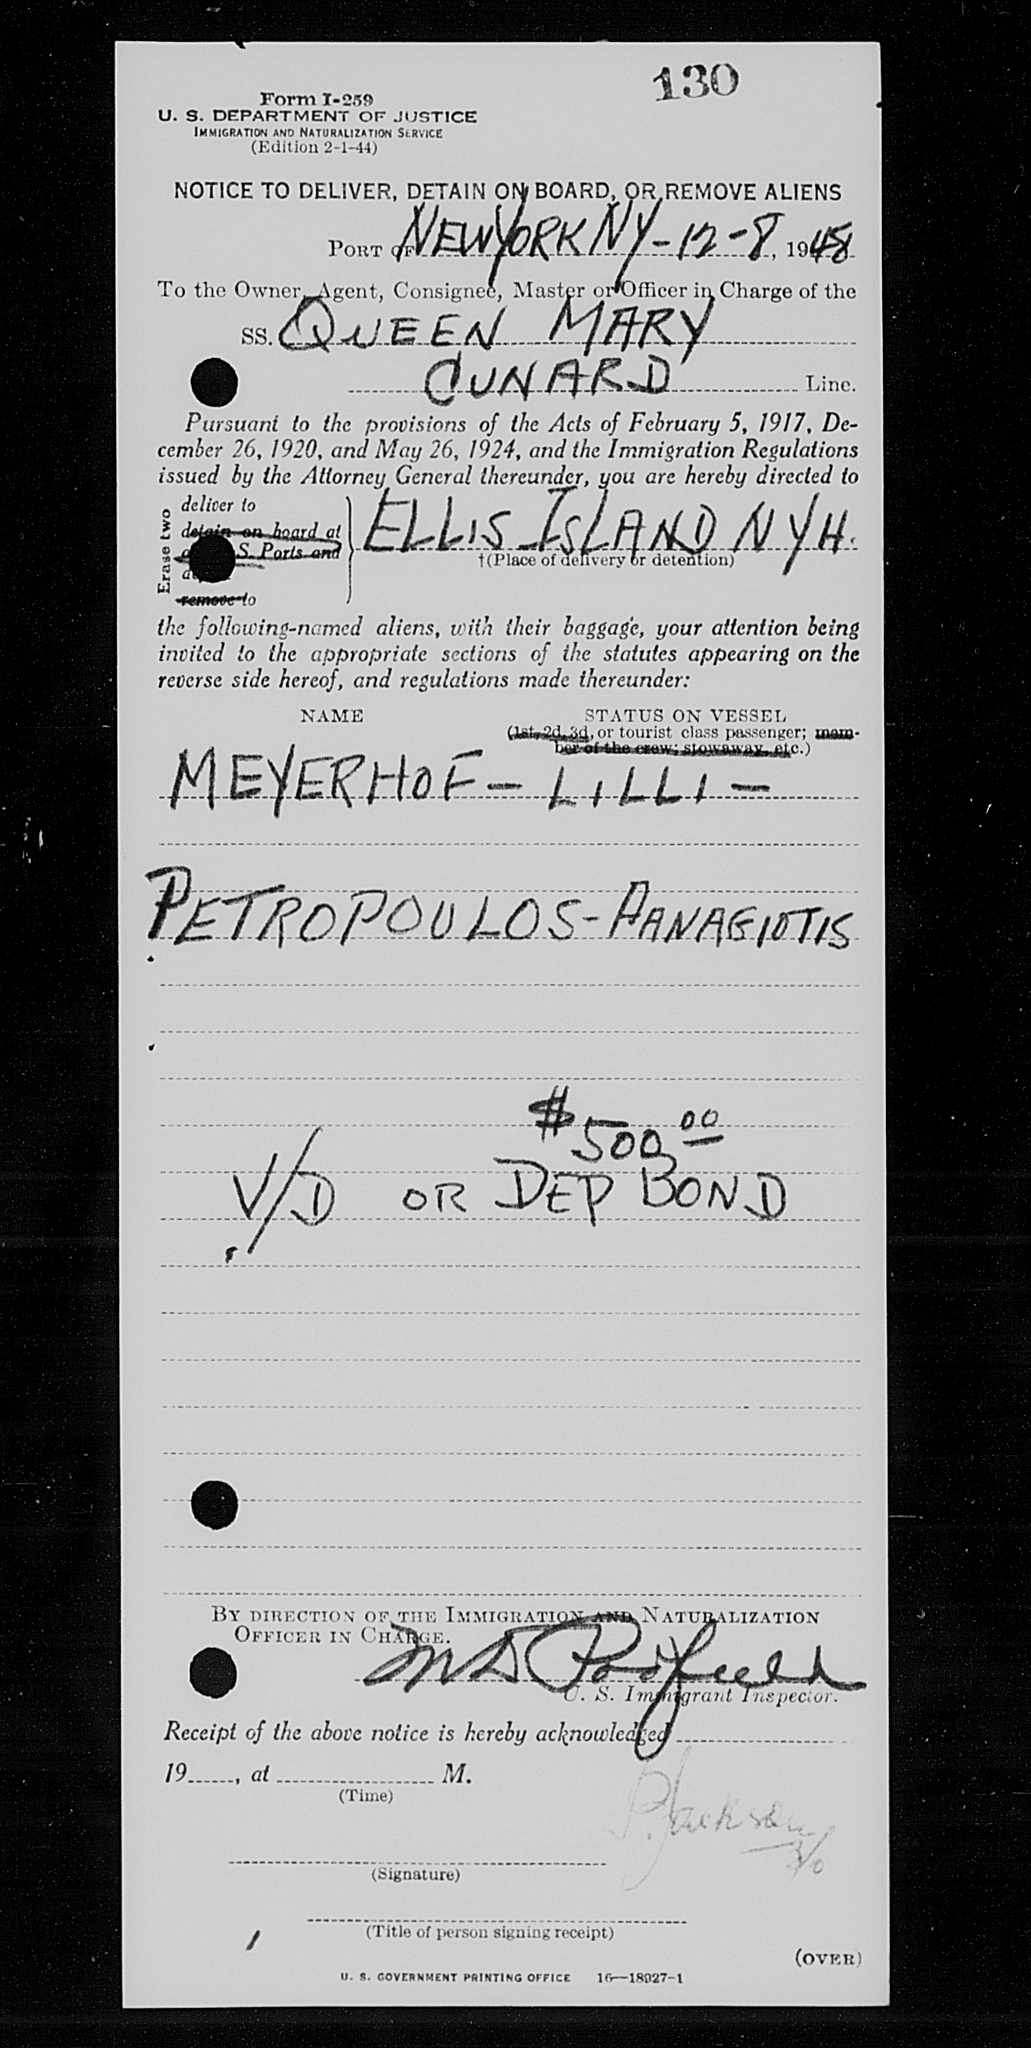 130
Form I-259
U. S. DEPARTMENT OF JUSTICE
IMMIGRATION AND NATURALIZATION SERVICE
(Edition 2-1-44)
NOTICE TO DELIVER, DETAIN ON BOARD, OR REMOVE ALIENS
PORT OF NEW YORK NY - 12 - 8, 1948
To the Owner, Agent, Consignee, Master or Officer in Charge of the
SS. QUEEN MARY
CUNARD Line.
Pursuant to the provisions of the Acts of February 5, 1917, De-
cember 26, 1920, and May 26, 1924, and the Immigration Regulations
issued by the Attorney General thereunder, you are hereby directed to
Erase two
deliver to
detain on board at
S. Ports and
remove to
ELLIS ISLAND NYH.
†(Place of delivery or detention)
the following-named aliens, with their baggage, your attention being
invited to the appropriate sections of the statutes appearing on the
reverse side hereof, and regulations made thereunder:
NAME STATUS ON VESSEL
(1st, 2d, 3d, or tourist class passenger; mem-
ber of the crew; stowaway, etc.)
MEYERHOF - LILLI -
PETROPOULOS - PANAGIOTIS
$500.00
V/D OR DEP BOND
BY DIRECTION OF THE IMMIGRATION AND NATURALIZATION
OFFICER IN CHARGE.
Padfield
U. S. Immigrant Inspector.
Receipt of the above notice is hereby acknowledged
19____, at ____ M.
(Time)
P. Jackson
(Signature)
(Title of person signing receipt)
(OVER)
U. S. GOVERNMENT PRINTING OFFICE 16—18927-1